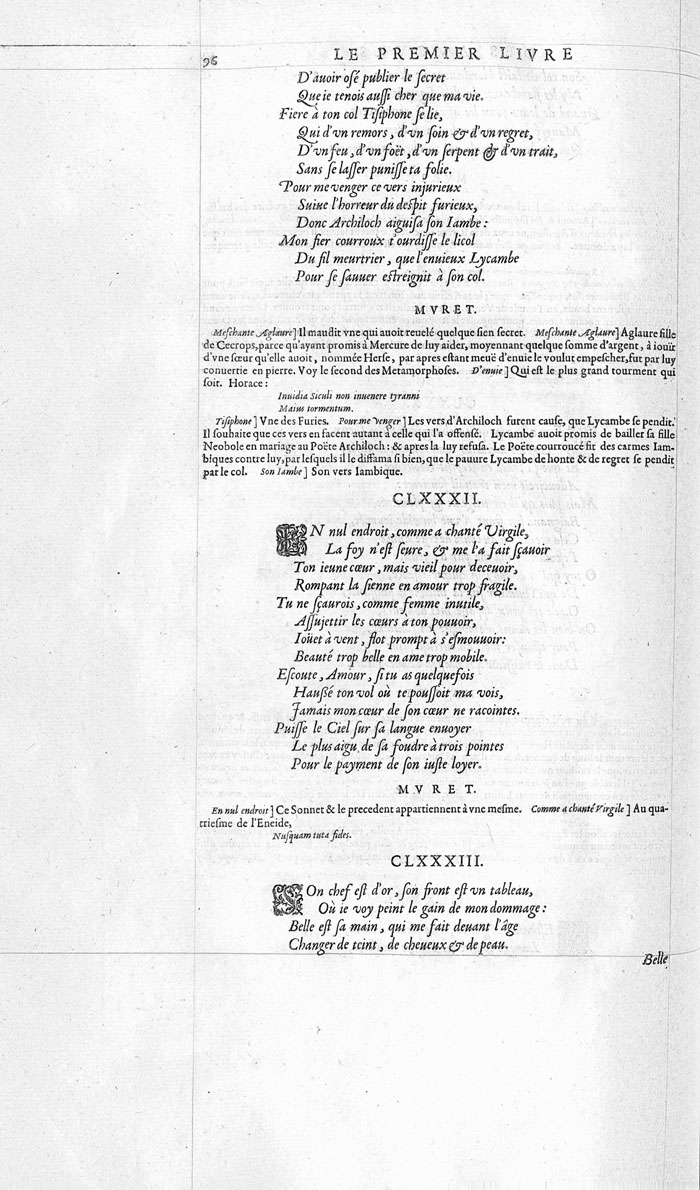 96 LE PREMIER LIVRE
D'auoir osé publier le secret
Que ie tenois aussi cher que ma vie.
Fiere à ton col Tisiphone se lie,
Qui d'vn remors, d'vn soin & d'vn regret,
D'vn feu, d'vn foët, d'vn serpent & d'vn trait,
Sans se lasser punisse ta folie.
Pour me venger ce vers injurieux
Suiue l'horreur du despit furieux,
Donc Archiloch aiguisa son Iambe:
Mon fier courroux t'ourdisse le licol
Du fil meurtrier, que l'enuieux Lycambe
Pour se sauuer estreignit à son col.
MVRET.
Meschante Aglaure] Il maudit vne qui auoit reuelé quelque sien secret. Meschante Aglaure] Aglaure fille
de Cecrops, parce qu'ayant promis à Mercure de luy aider, moyennant quelque somme d'argent, à iouïr
d'vne sœur qu'elle auoit, nommée Herse, par apres estant meuë d'enuie le voulut empescher, fut par luy
conuertie en pierre. Voy le second des Metamorphoses. D'enuie] Qui est le plus grand tourment qui
soit. Horace:
Inuidia Siculi non inuenere tyranni
Maius tormentum.
Tisiphone] Vne des Furies. Pour me venger] Les vers d'Archiloch furent cause, que Lycambe se pendit.
Il souhaite que ces vers en facent autant à celle qui l'a offensé. Lycambe auoit promis de bailler sa fille
Neobole en mariage au Poëte Archiloch: & apres la luy refusa. Le Poëte courroucé fit des carmes Iam-
biques contre luy, par lesquels il le diffama si bien, que le pauure Lycambe de honte & de regret se pendit
par le col. Son Iambe] Son vers Iambique.
CLXXXII.
EN nul endroit, comme a chanté Virgile,
La foy n'est seure, & me l'a fait sçauoir
Ton ieune cœur, mais vieil pour deceuoir,
Rompant la sienne en amour trop fragile.
Tu ne sçaurois, comme femme inutile,
Assujettir les cœurs à ton pouuoir,
Ioüet à vent, flot prompt à s'esmouuoir:
Beauté trop belle en ame trop mobile.
Escoute, Amour, si tu as quelquefois
Haussé ton vol où te poussoit ma vois,
Jamais mon cœur de son cœur ne racointes.
Puisse le Ciel sur sa langue enuoyer
Le plus aigu de sa foudre à trois pointes
Pour le payment de son iuste loyer.
MVRET.
En nul endroit] Ce Sonnet & le precedent appartiennent à vne mesme. Comme a chanté Virgile] Au qua-
triesme de l'Eneide,
Nusquam tuta fides.
CLXXXIII.
SOn chef est d'or, son front est vn tableau,
Où ie voy peint le gain de mon dommage:
Belle est sa main, qui me fait deuant l'âge
Changer de teint, de cheueux & de peau.
Belle